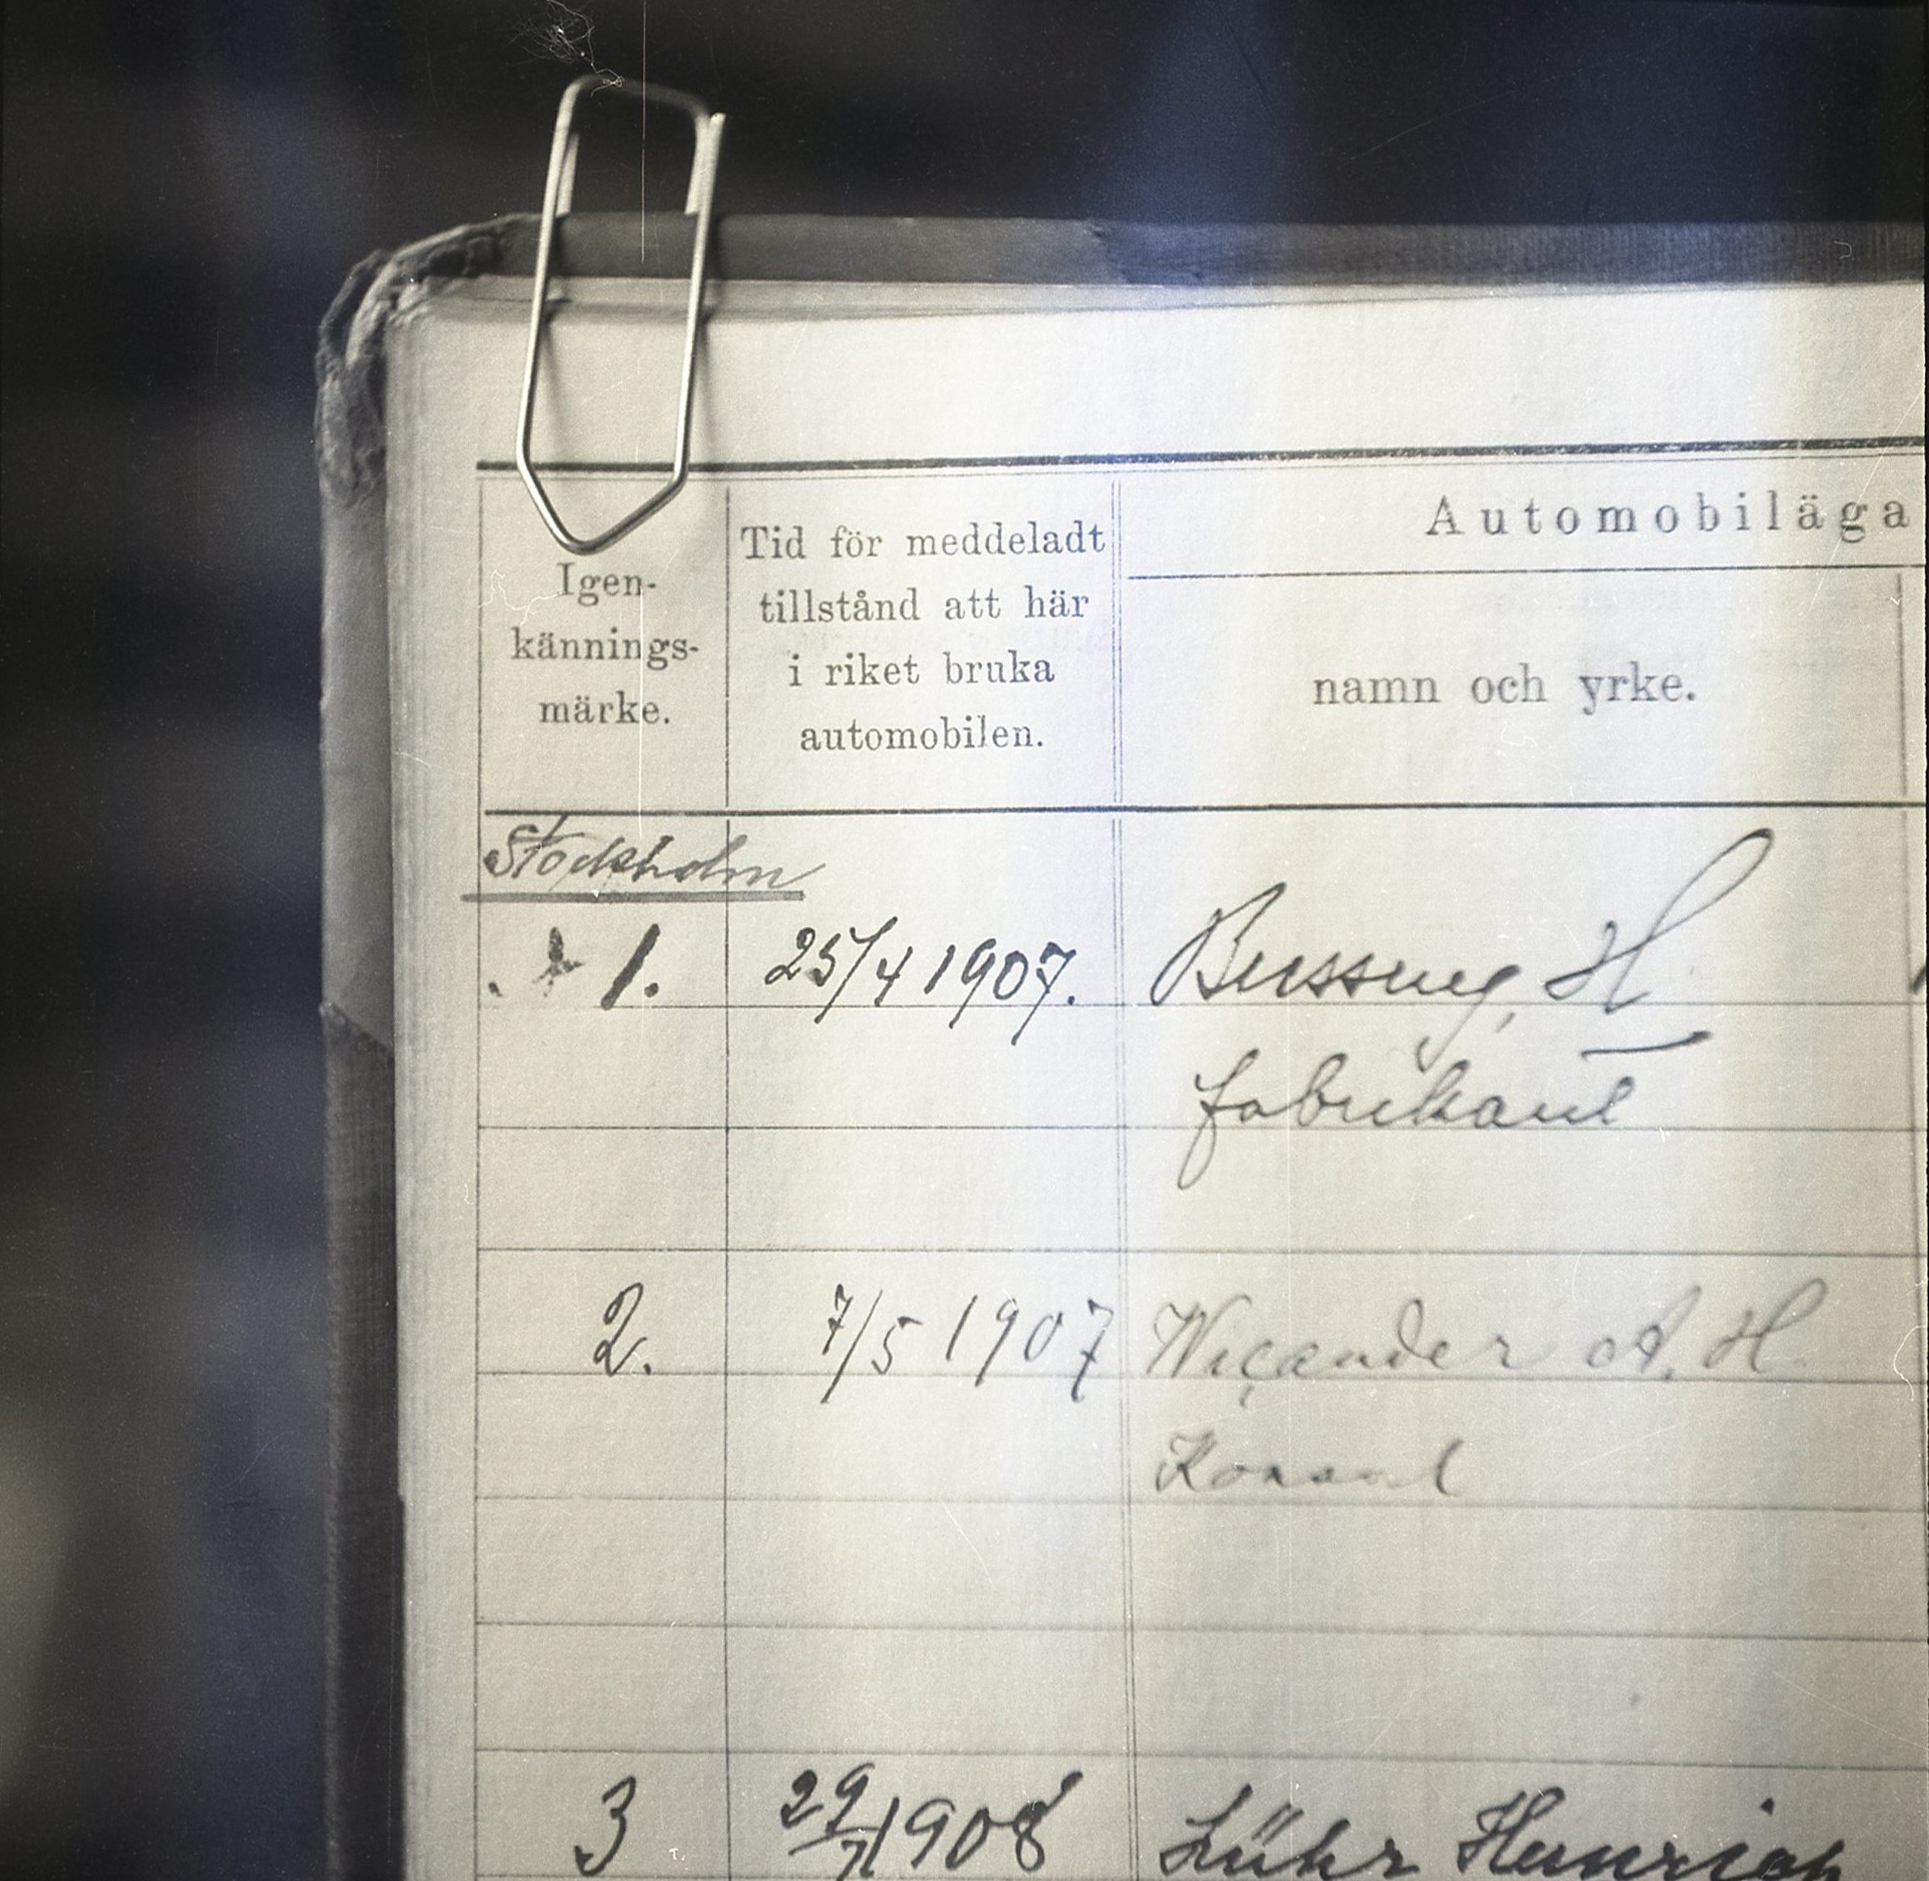 Igen-
kännings-
märke.
Tid för meddeladt
tillstånd att här
i riket bruka
automobilen.
Automobiläga
namn och yrke.
Stockholm
1. 25/4 1907. Bussing, H
fabrikant
2. 7/5 1907 Wicander A. H.
Konsul
3 29/7 1908 Lühr Heinrich